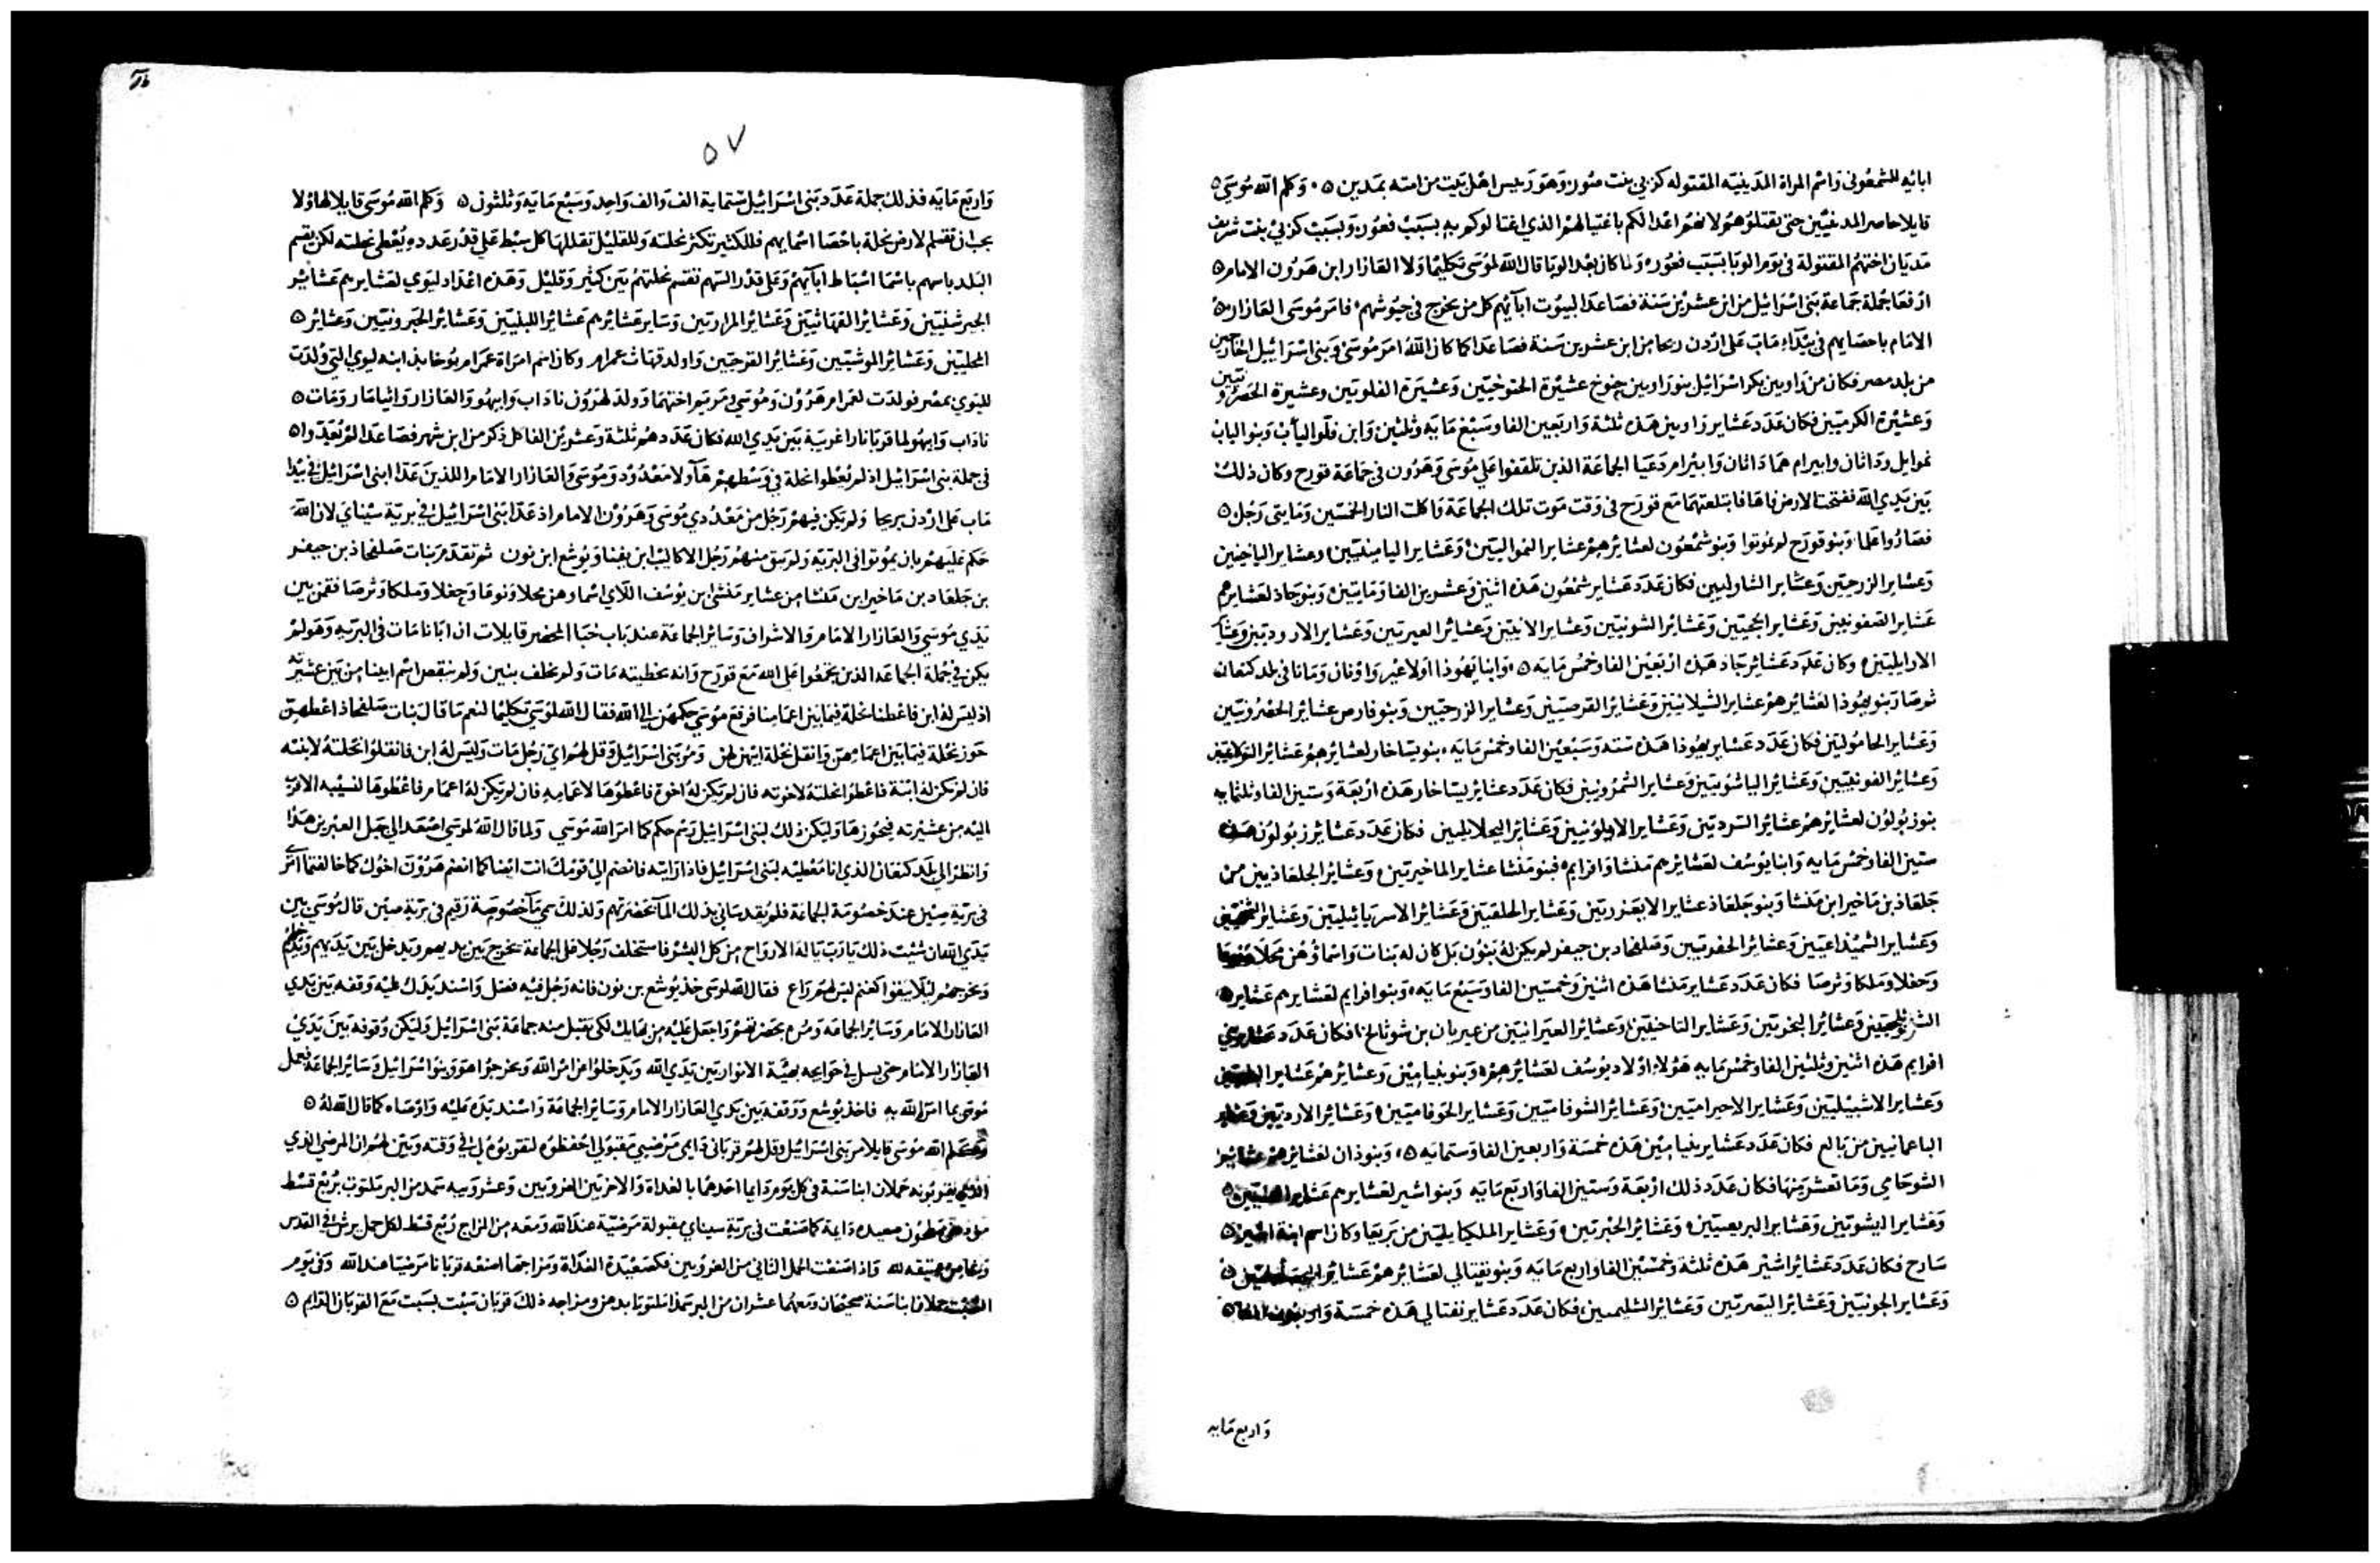 ابائه للشمعوني واسم المراة المدينيته المقتوله كزبي بنت صور وهو رييس اهل بيت من امته بمدين ٥ وكلم الله موسى ٥
قايلا حاصر المدينيين حتى يقتلوهم لانهم اعدا لكم باغتيالهم الذي اغتالوكم به بسبب فعور وبسبب كزبي بنت شريف
مديان اختهم المقتولة في يوم الوبا بسبب فعور ولما كان بعد الوبا قال الله لموسى تكليما ولالعازار ابن هرون الامام ٥
ارفعا جملة جماعة بني اسرائيل من ابن عشرين سنة فصاعدا لبيوت ابائهم كل من يخرج في جيوشهم فامر موسى العازار ٥
الامام باحصايهم في بيداء ماب على اردن ريحا من ابن عشرين سنة فصاعدا كما كان الله امر موسى وبني اسرائيل الخارجين
من بلد مصر فكان من راوبين بكر اسرائيل بنو راوبين حنوخ عشيرة الحنوخيين وعشيرة الفلويين وعشيرة الحصرونيين
وعشيرة الكرميين فكان عدد عشاير راوبين هذه ثلثة واربعين الفا وسبع مايه وثلثين وابن فلو الياب وبنو الياب
نموايل وداثان وابيرام هما داثان وابيرام دعيا الجماعة الذين تلقفوا على موسى وهرون في جماعة قورح وكان ذلك
بين يدي الله ففتحت الارض فاها فابتلعتهما مع قورح في وقت موت تلك الجماعة واكلت النار الخمسين ومايتي رجل ٥
فصاروا علما وبنو قورح لم يموتوا وبنو شمعون لعشايرهم عشاير النمواليين وعشاير اليامينيين وعشاير الياخينين
وعشاير الزرحيين وعشاير الشاوليين فكان عدد عشاير شمعون هذه اثنين وعشرين الفا ومايتين وبنو جاد لعشايرهم
عشاير الصفونيين وعشاير الحجيين وعشائر الشونيين وعشاير الازنيين وعشائر العيريين وعشاير الاروديين وعشاير
الارايليين وكان عدد عشاير جاد هذه اربعين الفا وخمس مايه ٥ وابنا يهوذا اولا عير واونان وماتا في بلد كنعان
ثم صار بنو يهوذا لعشائرهم عشاير الشيلانيين وعشائر الفرصيين وعشاير الزرحيين وبنو فارص عشائر الحصرونيين
وعشاير الحاموليين فكان عدد عشاير يهوذا هذه ستة وسبعين الفا وخمس مايه بنو يساخار لعشايرهم عشائر التولاعيين
وعشائر الفونيين وعشائر الياشوبيين وعشاير الشمرونيين فكان عدد عشاير يساخار هذه اربعة وستين الفا وثلثمايه
بنو زبولون لعشائرهم عشائر السرديين وعشائر الايلونيين وعشائر اليحلايليين فكان عدد عشائر زبولون هذه
ستين الفا وخمس مايه وابنا يوسف لعشائرهم منشا وافرايم فبنو منشا عشاير الماخيريين وعشائر الجلعاذيين من
جلعاذ بن ماخير ابن منشا وبنو جلعاذ عشاير الايعزريين وعشاير الحلقيين وعشائر الاسريائيليين وعشائر
وعشاير الشميذاعيين وعشائر الحفريين وصلفحاد بن حيفر لم يكن له بنون بل كان له بنات واسماؤهن محلا ونوعا
وحغلا وملكا وثرصا فكان عدد عشاير منشا هذه اثنين وخمسين الفا وسبع مايه وبنو افرايم لعشايرهم عشاير ٥
وعشائر البخريين وعشاير التاحنيين وعشائر العيرانيين من عيران بن شوثالح فكان عدد عشاير بني
افرايم هذه اثنين وثلثين الفا وخمس مايه هؤلاء اولاد يوسف لعشائرهم وبنو بنيامين وعشائرهم عشاير
وعشاير الاشبيليين وعشاير الاحيراميين وعشائر الشوفاميين وعشاير الحوفاميين وعشائر الارديين وعشاير
الناعمانيين من بالع فكان عدد عشاير بنيامين هذه خمسة واربعين الفا وستمايه ٥ وبنو ذان لعشائرهم عشائر
الشوحامي وما تعشر منها فكان عدد ذلك اربعة وستين الفا واربع مايه وبنو اشير لعشايرهم عشاير
وعشاير اليشويين وعشاير البريعيين وعشائر الحبريين وعشاير الملكيايليين من بريعا وكان اسم ابنة اشير ٥
سارح فكان عدد عشائر اشير هذه ثلثة وخمسين الفا واربع مايه وبنو نفتالي لعشائرهم عشائر ٥
وعشاير الجونيين وعشائر اليصريين وعشائر الشليميين فكان عدد عشاير نفتالي هذه خمسة واربعون الفا ٥
واربع مايه
٥٧
واربع مايه فذلك جملة عدد بني اسرائيل ستماية الف والف واحد وسبع مايه وثلثون ٥ وكلم الله موسى قايلا لهاولا
يجب ان تقسم الارض نحلة باحصا اسمايهم فللكثير تكثر نحلته وللقليل تقللها كل سبط على قدر عدده يعطى نحلته لكن يقسم
البلد باسهم باسما اسباط ابائهم وعلى قدر السهم تقسم نحلتهم بين كثير وقليل وهذه اعداد ليوي لعشايرهم عشائر
الجرشنيين وعشائر القهاثيين وعشائر المراريين وساير عشائرهم عشائر اللبنيين وعشائر الحبرونيين وعشائر ٥
المحليين وعشائر الموشيين وعشائر القرحيين واولد قهاث عمرام وكان اسم امراة عمرام يوخابذ ابنه ليوي التي ولدت
لليوي بمصر فولدت لعمرام هرون وموسى ومريم اختهما وولد لهرون ناداب وابيهو والعازار واثيامار ومات ٥
ناداب وابيهو لما قربا نارا غريبة بين يدي الله فكان عددهم ثلثة وعشرين الفا كل ذكر من ابن شهر فصاعدا لم يعدوا ٥
في جملة بني اسرائيل اذ لم يعطوا نحلة في وسطهم هاولا معدودو موسى والعازار الامام اللذين عدا بني اسرائيل في بيدا
ماب على اردن يريحا ولم يكن فيهم رجل من معدودي موسى وهرون الامام اذ عدا بني اسرائيل في برية سيناي لان الله
حكم عليهم بان يموتوا في البرية ولم يبق منهم رجل الا كاليب ابن يفنا ويوشع ابن نون ثم تقدم بنات صلفحاذ بن حيفر
بن جلعاد بن ماخير ابن منشا من عشاير منشى ابن يوسف اللاي اسماوهن محلا ونوعا وحغلا وملكا وثرصا فقمن بين
يدي موسى والعازار الامام والاشراف وسائر الجماعة عند باب خبا المحضر قايلات ان ابانا مات في البريه وهو لم
يكن في جملة الجماعة الذين تجمعوا على الله مع قورح وانه بخطيته مات ولم يخلف بنين ولم ينقص اسم ابينا من بين عشيرته
اذ ليس له ابن فاعطنا نحلة فيما بين اعمامنا فرفع موسى حكمهن الى الله فقال الله لموسى تكليما نعم ما قال بنات صلفحاذ اعطهن
حوز نحلة فيما بين اعمامهن وانقل نحلة ابيهن لهن ومر بني اسرائيل وقل لهم اي رجل مات وليس له ابن فانقلوا نحلته لابنته
فان لم يكن له ابنة فاعطوا نحلته لاخوته فان لم يكن له اخوة فاعطوها لاعمامه فان لم يكن له اعمام فاعطوها لنسيبه الاقرب
اليه من عشيرته فيحوزها وليكن ذلك لبني اسرائيل رسم حكم كما امر الله موسى ولما قال الله لموسى اصعد الى جبل العبرين هذا
وانظر الى بلد كنعان الذي انا معطيه لبني اسرائيل فاذا رايته فانضم الى قومك انت ايضا كما انضم هرون اخوك كما خالفتما امري
في برية صين عند خصومة الجماعة فلم يقدساني بذلك الماء بحضرتهم ولذلك سمي ماء خصومة رقيم في برية صين قال موسى بين
يدي الله ان شئت ذلك يا رب يا اله الارواح من كل البشر فاستخلف رجلا على الجماعة يخرج بين يديهم ويدخل بين يديهم ويدخلهم
ويخرجهم ليلا يبقوا كغنم ليس لهم راع فقال الله لموسى خذ يوشع بن نون فانه رجل فيه فضل واسند يدك عليه وقفه بين يدي
العازار الامام وسائر الجماعة ومره بحضرتهم واجعل عليه من بهايك لكي يقبل منه جماعة بني اسرائيل وليكن وقوفه بين يدي
العازار الامام حتى يسل في حوايجه بهيئة الانوار بين يدي الله ويدخلوا عن امر الله ويخرجوا هو وبنو اسرائيل وسائر الجماعة فعمل
موسى بما امر الله به فاخذ يوشع ووقفه بين يدي العازار الامام وسائر الجماعة واسند يده عليه واوصاه كما قال الله له ٥
وكلم الله موسى قايلا مر بني اسرائيل وقل لهم قرباني دايمي مرضيي مقبولي احفظوه لتقربوه لي في وقته وبين لهم ان المرضي الذي
تقربونه حملان ابنا سنة في كل يوم دايما احدهما بالغداة والاخر بين الغروبين وعشر ويبه سمد من البر ملتوت بربع قسط
دايمة كما صنعت في برية سيناي مقبولة مرضية عند الله ومعه من المزاج ربع قسط لكل حمل يرش في القدس
لله واذا صنعت الحمل الثاني من الغروبين فكصعيدة الغداة ومزاجها اصنعه قربانا مرضيا عند الله وفي يوم
السبت حملان ابنا سنة صحيحان ومعهما عشران من البر سمذا ملتوتا بدهن ومزاجه ذلك قربان سبت بسبت مع القربان الدايم ٥